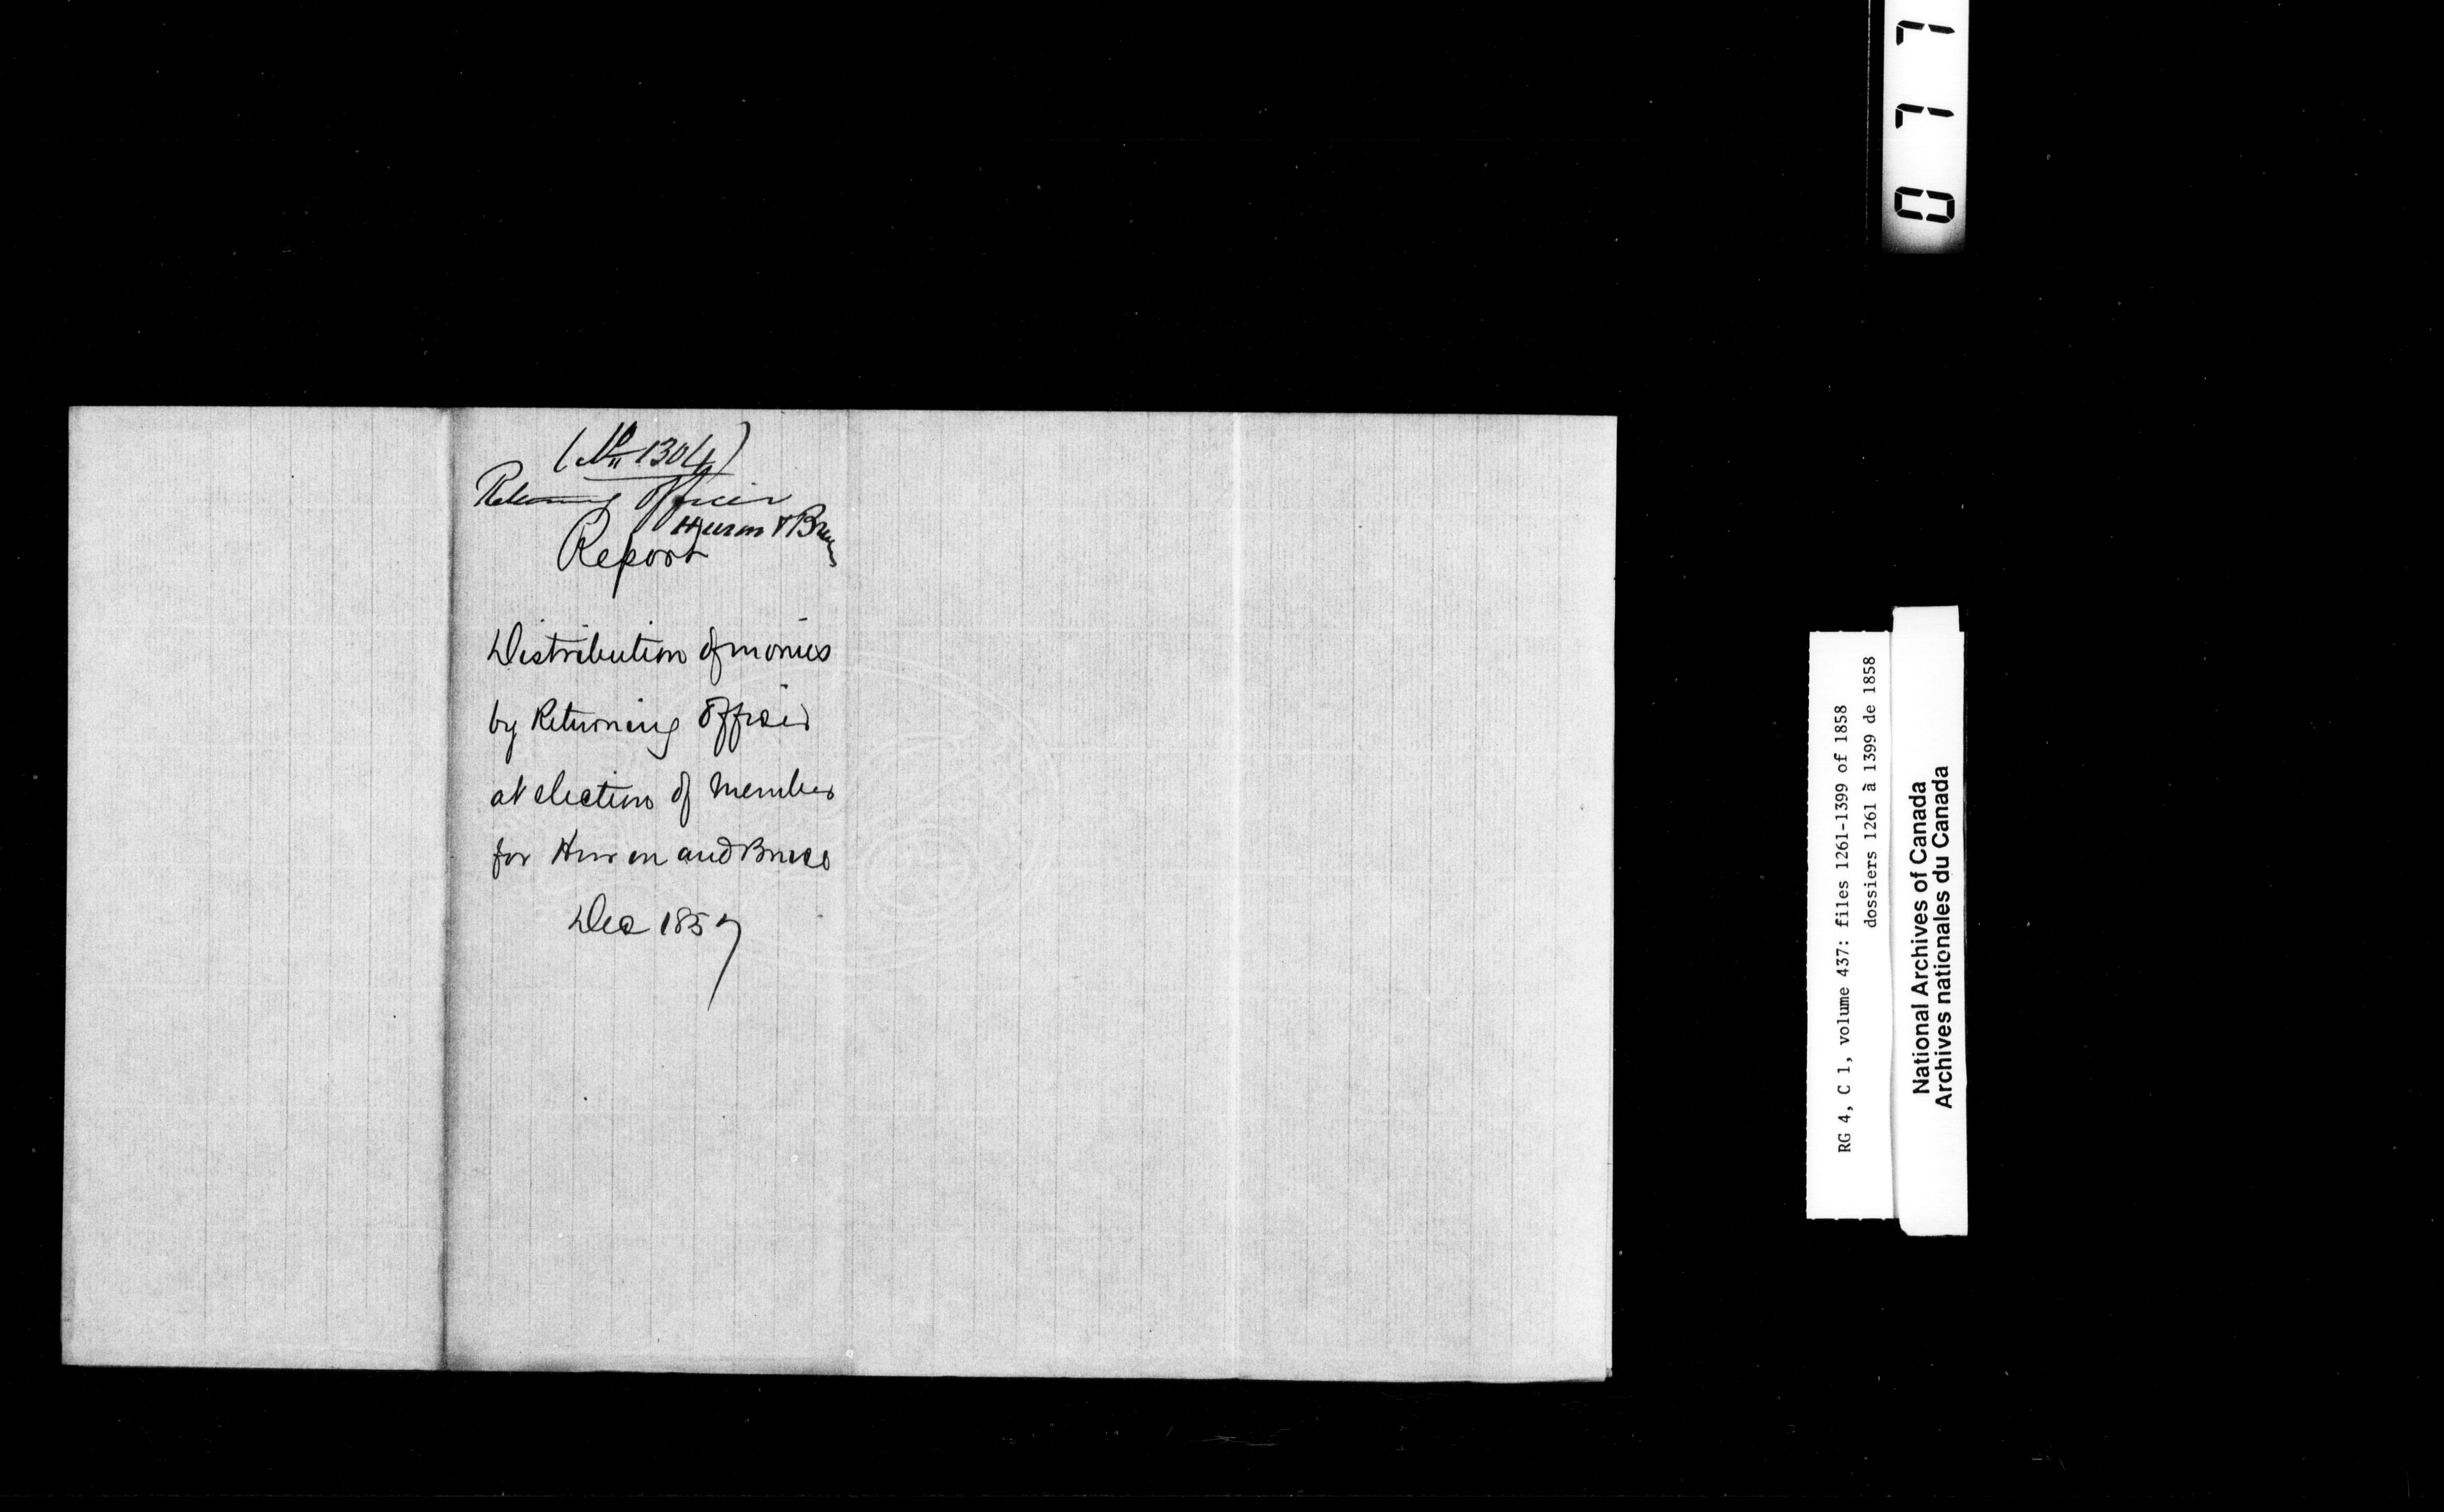 (No 1304)
Returning Officer
Huron & Bruce
Report
Distribution of monies
by Returning Officer
at election of Member
for Huron and Bruce
Dec 1857
0 7 7
RG 4, C 1, volume 437: files 1261-1399 of 1858
dossiers 1261 à 1399 de 1858
National Archives of Canada
Archives nationales du Canada